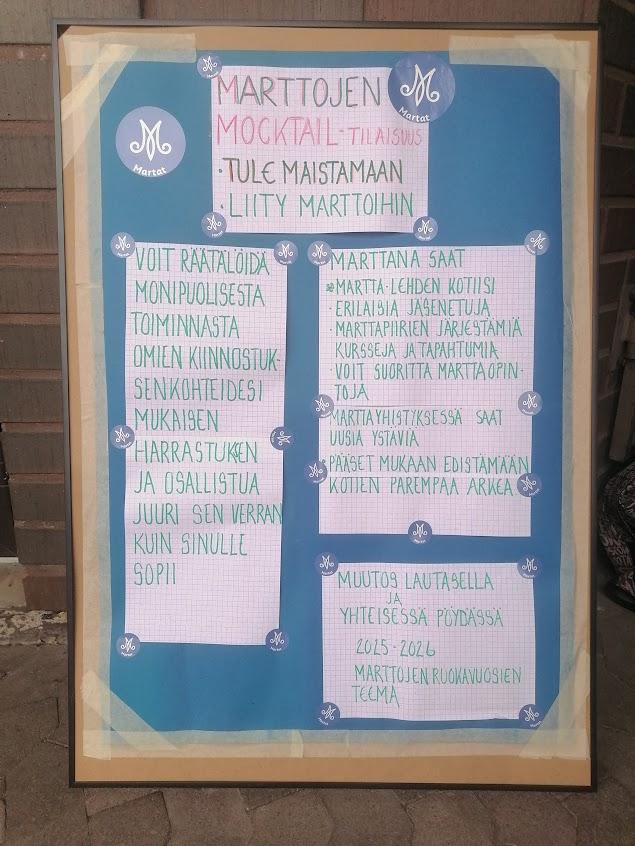 MARTTOJEN
MOCKTAIL-TILAISUUS
· TULE MAISTAMAAN
· LIITY MARTTOIHIN
Martat
Martat
VOIT RÄÄTÄLÖIDÄ
MONIPUOLISESTA
TOIMINNASTA
OMIEN KIINNOSTUK-
SENKOHTEIDESI
MUKAISEN
HARRASTUKSEN
JA OSALLISTUA
JUURI SEN VERRAN
KUIN SINULLE
SOPII
MARTTANA SAAT
· MARTTA-LEHDEN KOTIISI
· ERILAISIA JÄSENETUJA
· MARTTAPIIRIEN JÄRJESTÄMIÄ
KURSSEJA JA TAPAHTUMIA
· VOIT SUORITTA MARTTAOPIN-
TOJA
MARTTAYHISTYKSESSÄ SAAT
UUSIA YSTÄVIÄ
· PÄÄSET MUKAAN EDISTÄMÄÄN
KOTIEN PAREMPAA ARKEA
MUUTOS LAUTASELLA
JA
YHTEISESSÄ PÖYDÄSSÄ
2025-2026
MARTTOJEN RUOKAVUOSIEN
TEEMA